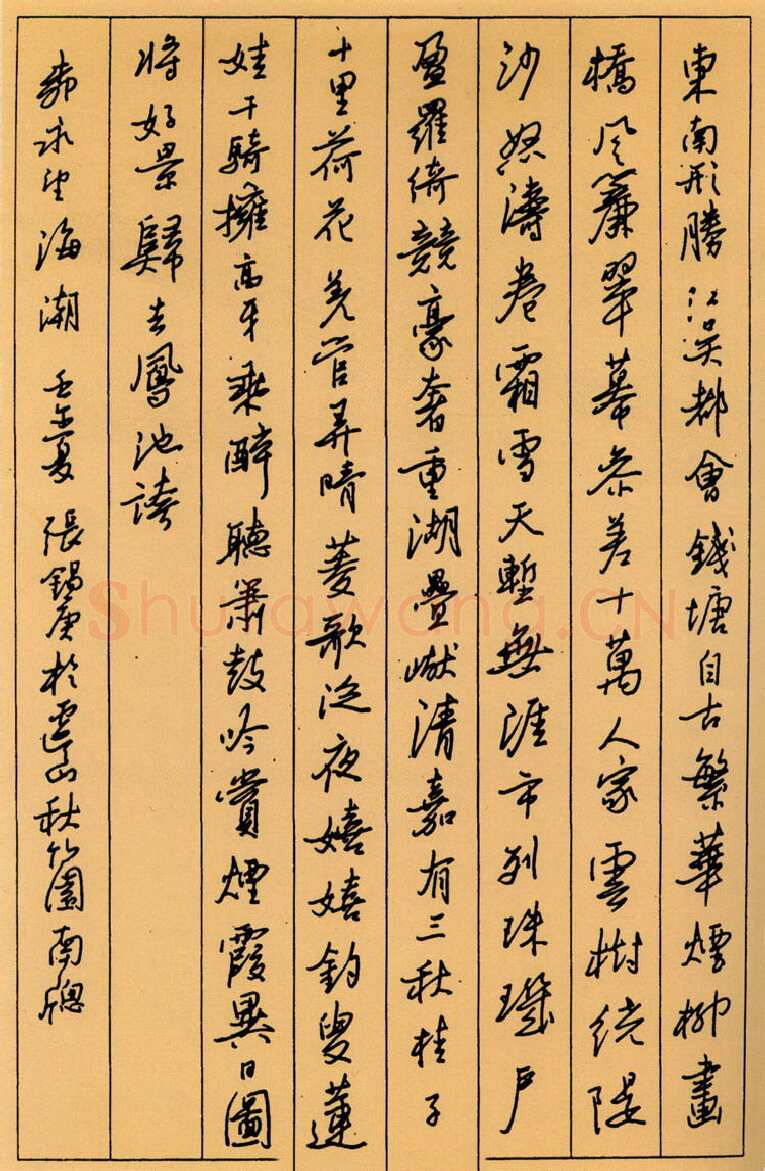 東南形勝江吴都會錢塘自古繁華煙柳畫
橋風簾翠幕參差十萬人家雲樹繞隄
沙怒濤卷霜雪天塹無涯市列珠璣戶
盈羅綺競豪奢重湖疊巘清嘉有三秋桂子
十里荷花羌管弄晴菱歌泛夜嬉嬉釣叟蓮
娃千騎擁高牙乘醉聽簫鼓吟賞煙霞異日圖
將好景歸去鳳池誇
柳永望海潮 壬午夏 張錫庚於山秋竹園南窗
Shufawang.CN